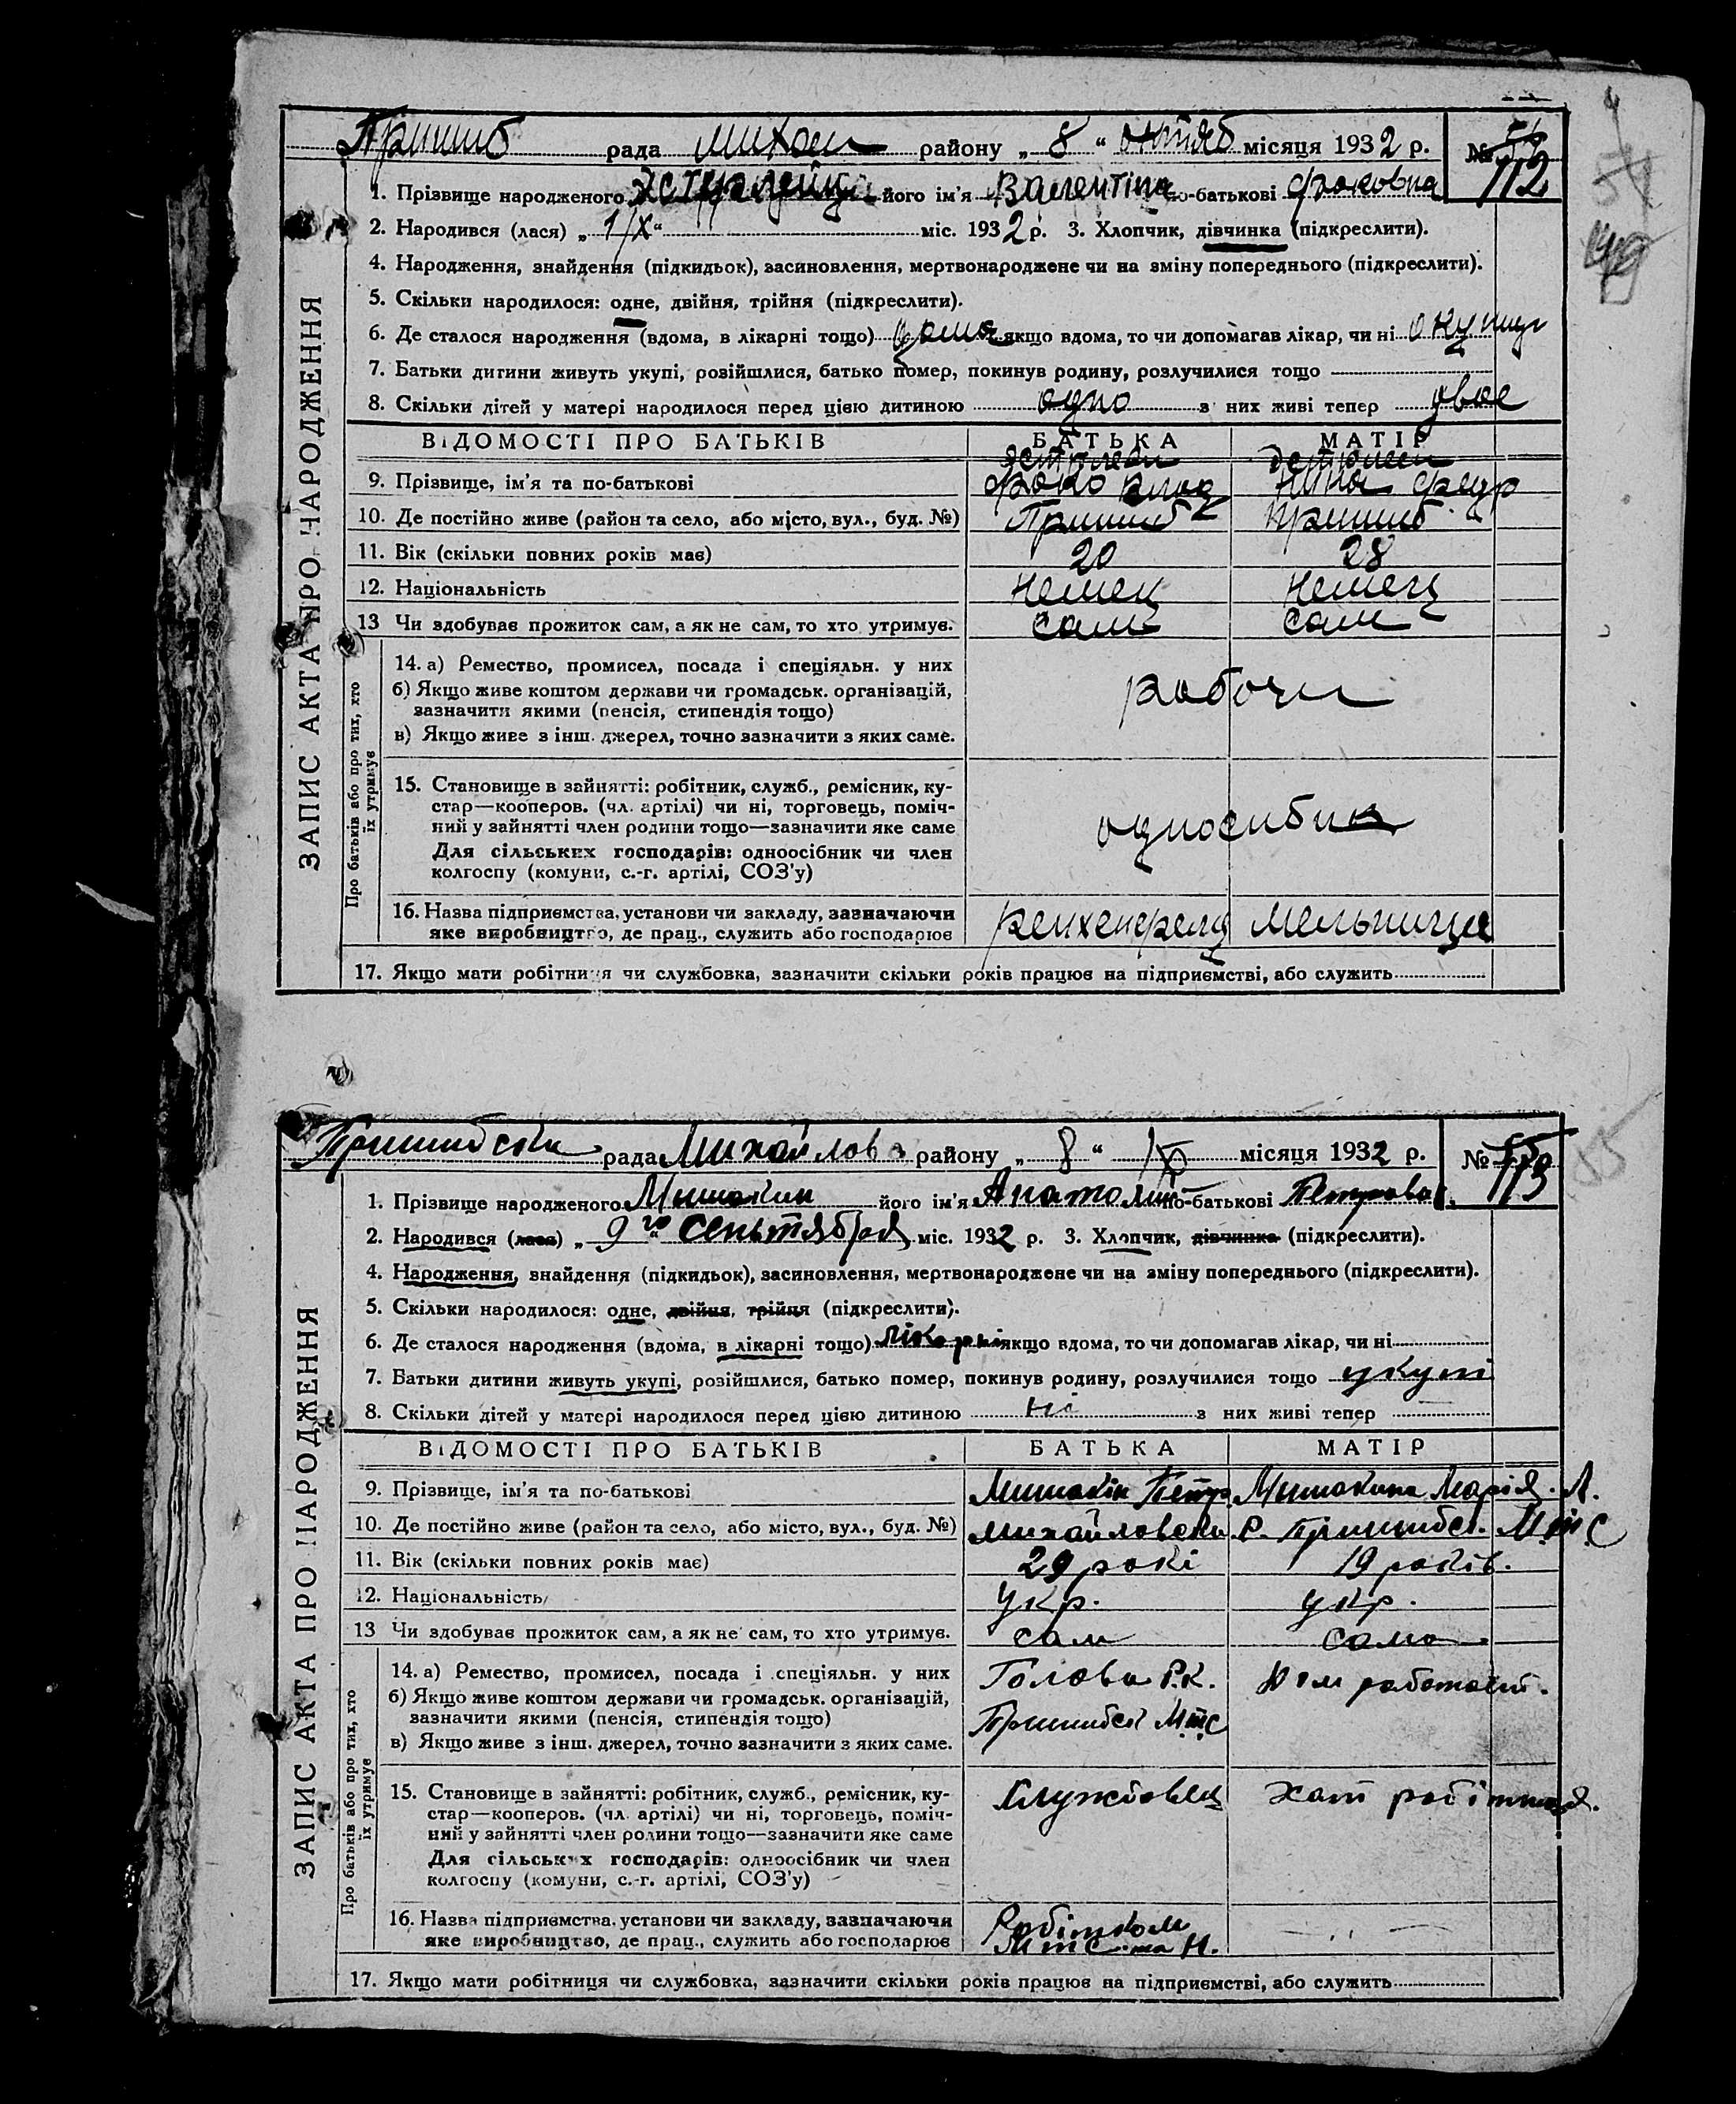 Пришиб рада михай району „ 8 “ октяб місяця 1932 р. № 112
1. Прізвище народженого його ім'я Валентина по-батькові
2. Народився (лася) „ 1/X “ міс. 1932 р. 3. Хлопчик, дівчинка (підкреслити).
4. Народження, знайдення (підкидьок), засиновлення, мертвонароджене чи на зміну попереднього (підкреслити).
5. Скільки народилося: одне, двійня, трійня (підкреслити).
6. Де сталося народження (вдома, в лікарні тощо) дома якщо вдома, то чи допомагав лікар, чи ні
7. Батьки дитини живуть укупі, розійшлися, батько помер, покинув родину, розлучилися тощо
8. Скільки дітей у матері народилося перед цією дитиною одно з них живі тепер двое
ЗАПИС АКТА ПРО НАРОДЖЕННЯ
ВІДОМОСТІ ПРО БАТЬКІВ БАТЬКА МАТІР
9. Прізвище, ім'я та по-батькові Нина Федр
10. Де постійно живе (район та село, або місто, вул., буд. №) Пришиб Пришиб
11. Вік (скільки повних років має) 20 28
12. Національність немец немец
13 Чи здобував прожиток сам, а як не сам, то хто утримує. сам сам
Про батьків або про тих, хто їх утримує
14. а) Ремество, промисел, посада і спеціяльн. у них
б) Якщо живе коштом держави чи громадськ. організацій,
зазначити якими (пенсія, стипендія тощо)
в) Якщо живе з інш. джерел, точно зазначити з яких саме.
рабочи
15. Становище в зайнятті: робітник, служб., ремісник, ку-
стар—кооперов. (чл. артілі) чи ні, торговець, поміч-
ний у зайнятті член родини тощо—зазначити яке саме
Для сільських господарів: одноосібник чи член
колгоспу (комуни, с.-г. артілі, СОЗ'у)
16. Назва підприємства, установи чи закладу, зазначаючи
яке виробництво, де прац., служить або господарює
рейхенфельд мельница
17. Якщо мати робітниця чи службовка, зазначити скільки років працює на підприємстві, або служить
Пришибски рада Михайлов району „ 8 “ місяця 1932 р. № 113
1. Прізвище народженого Мишакин його ім'я Анатолий по-батькові Петрович
2. Народився (лася) „ 9 го “ сеньтября міс. 1932 р. 3. Хлопчик, дівчинка (підкреслити).
4. Народження, знайдення (підкидьок), засиновлення, мертвонароджене чи на зміну попереднього (підкреслити).
5. Скільки народилося: одне, двійня, трійня (підкреслити).
6. Де сталося народження (вдома, в лікарні тощо) лікарні якщо вдома, то чи допомагав лікар, чи ні
7. Батьки дитини живуть укупі, розійшлися, батько помер, покинув родину, розлучилися тощо укупі
8. Скільки дітей у матері народилося перед цією дитиною ні з них живі тепер
ЗАПИС АКТА ПРО НАРОДЖЕННЯ
ВІДОМОСТІ ПРО БАТЬКІВ БАТЬКА МАТІР
9. Прізвище, ім'я та по-батькові Мишакін Петр Мишакина Марія. Л.
10. Де постійно живе (район та село, або місто, вул., буд. №) Михайловски Р. Пришибск. М.т.С
11. Вік (скільки повних років має) 29 рокі 19 років.
12. Національність Укр. Укр.
13 Чи здобував прожиток сам, а як не сам, то хто утримує. сам сама
Про батьків або про тих, хто їх утримує
14. а) Ремество, промисел, посада і спеціяльн. у них
б) Якщо живе коштом держави чи громадськ. організацій,
зазначити якими (пенсія, стипендія тощо)
в) Якщо живе з інш. джерел, точно зазначити з яких саме.
Голова Р.К.
Пришибск МТС
15. Становище в зайнятті: робітник, служб., ремісник, ку-
стар—кооперов. (чл. артілі) чи ні, торговець, поміч-
ний у зайнятті член родини тощо—зазначити яке саме
Для сільських господарів: одноосібник чи член
колгоспу (комуни, с.-г. артілі, СОЗ'у)
Службовец Хат робітниця.
16. Назва підприємства, установи чи закладу, зазначаючи
яке виробництво, де прац., служить або господарює
Робітком
МТС
17. Якщо мати робітниця чи службовка, зазначити скільки років працює на підприємстві, або служить